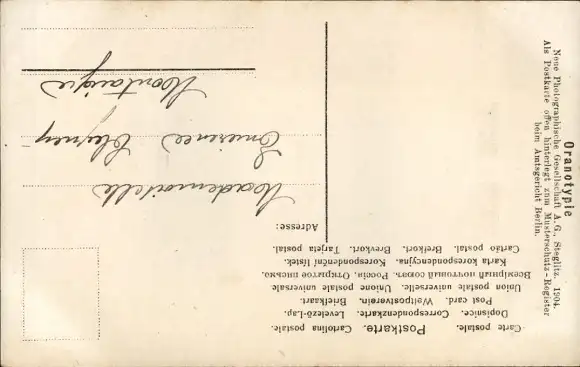 Carte postale. Postkarte. Cartolina postale.
Dopisnice. Correspondenzkarte. Levelező-Lap.
Post card. Weltpostverein. Briefkaart.
Union postale universelle. Unione postale universale
Всемірный почтовый союзъ. Россія. Открытое письмо.
Karta korespondencyjna. Korespondenční lístek.
Cartão postal. Brefkort. Brevkort. Tarjeta postal.
Adresse:
Mademoiselle
Emérence
Montaigu
Oranotypie
Neue Photographische Gesellschaft A.G., Steglitz. 1904.
Als Postkarte offen hinterlegt zum Musterschutz-Register
beim Amtsgericht Berlin.